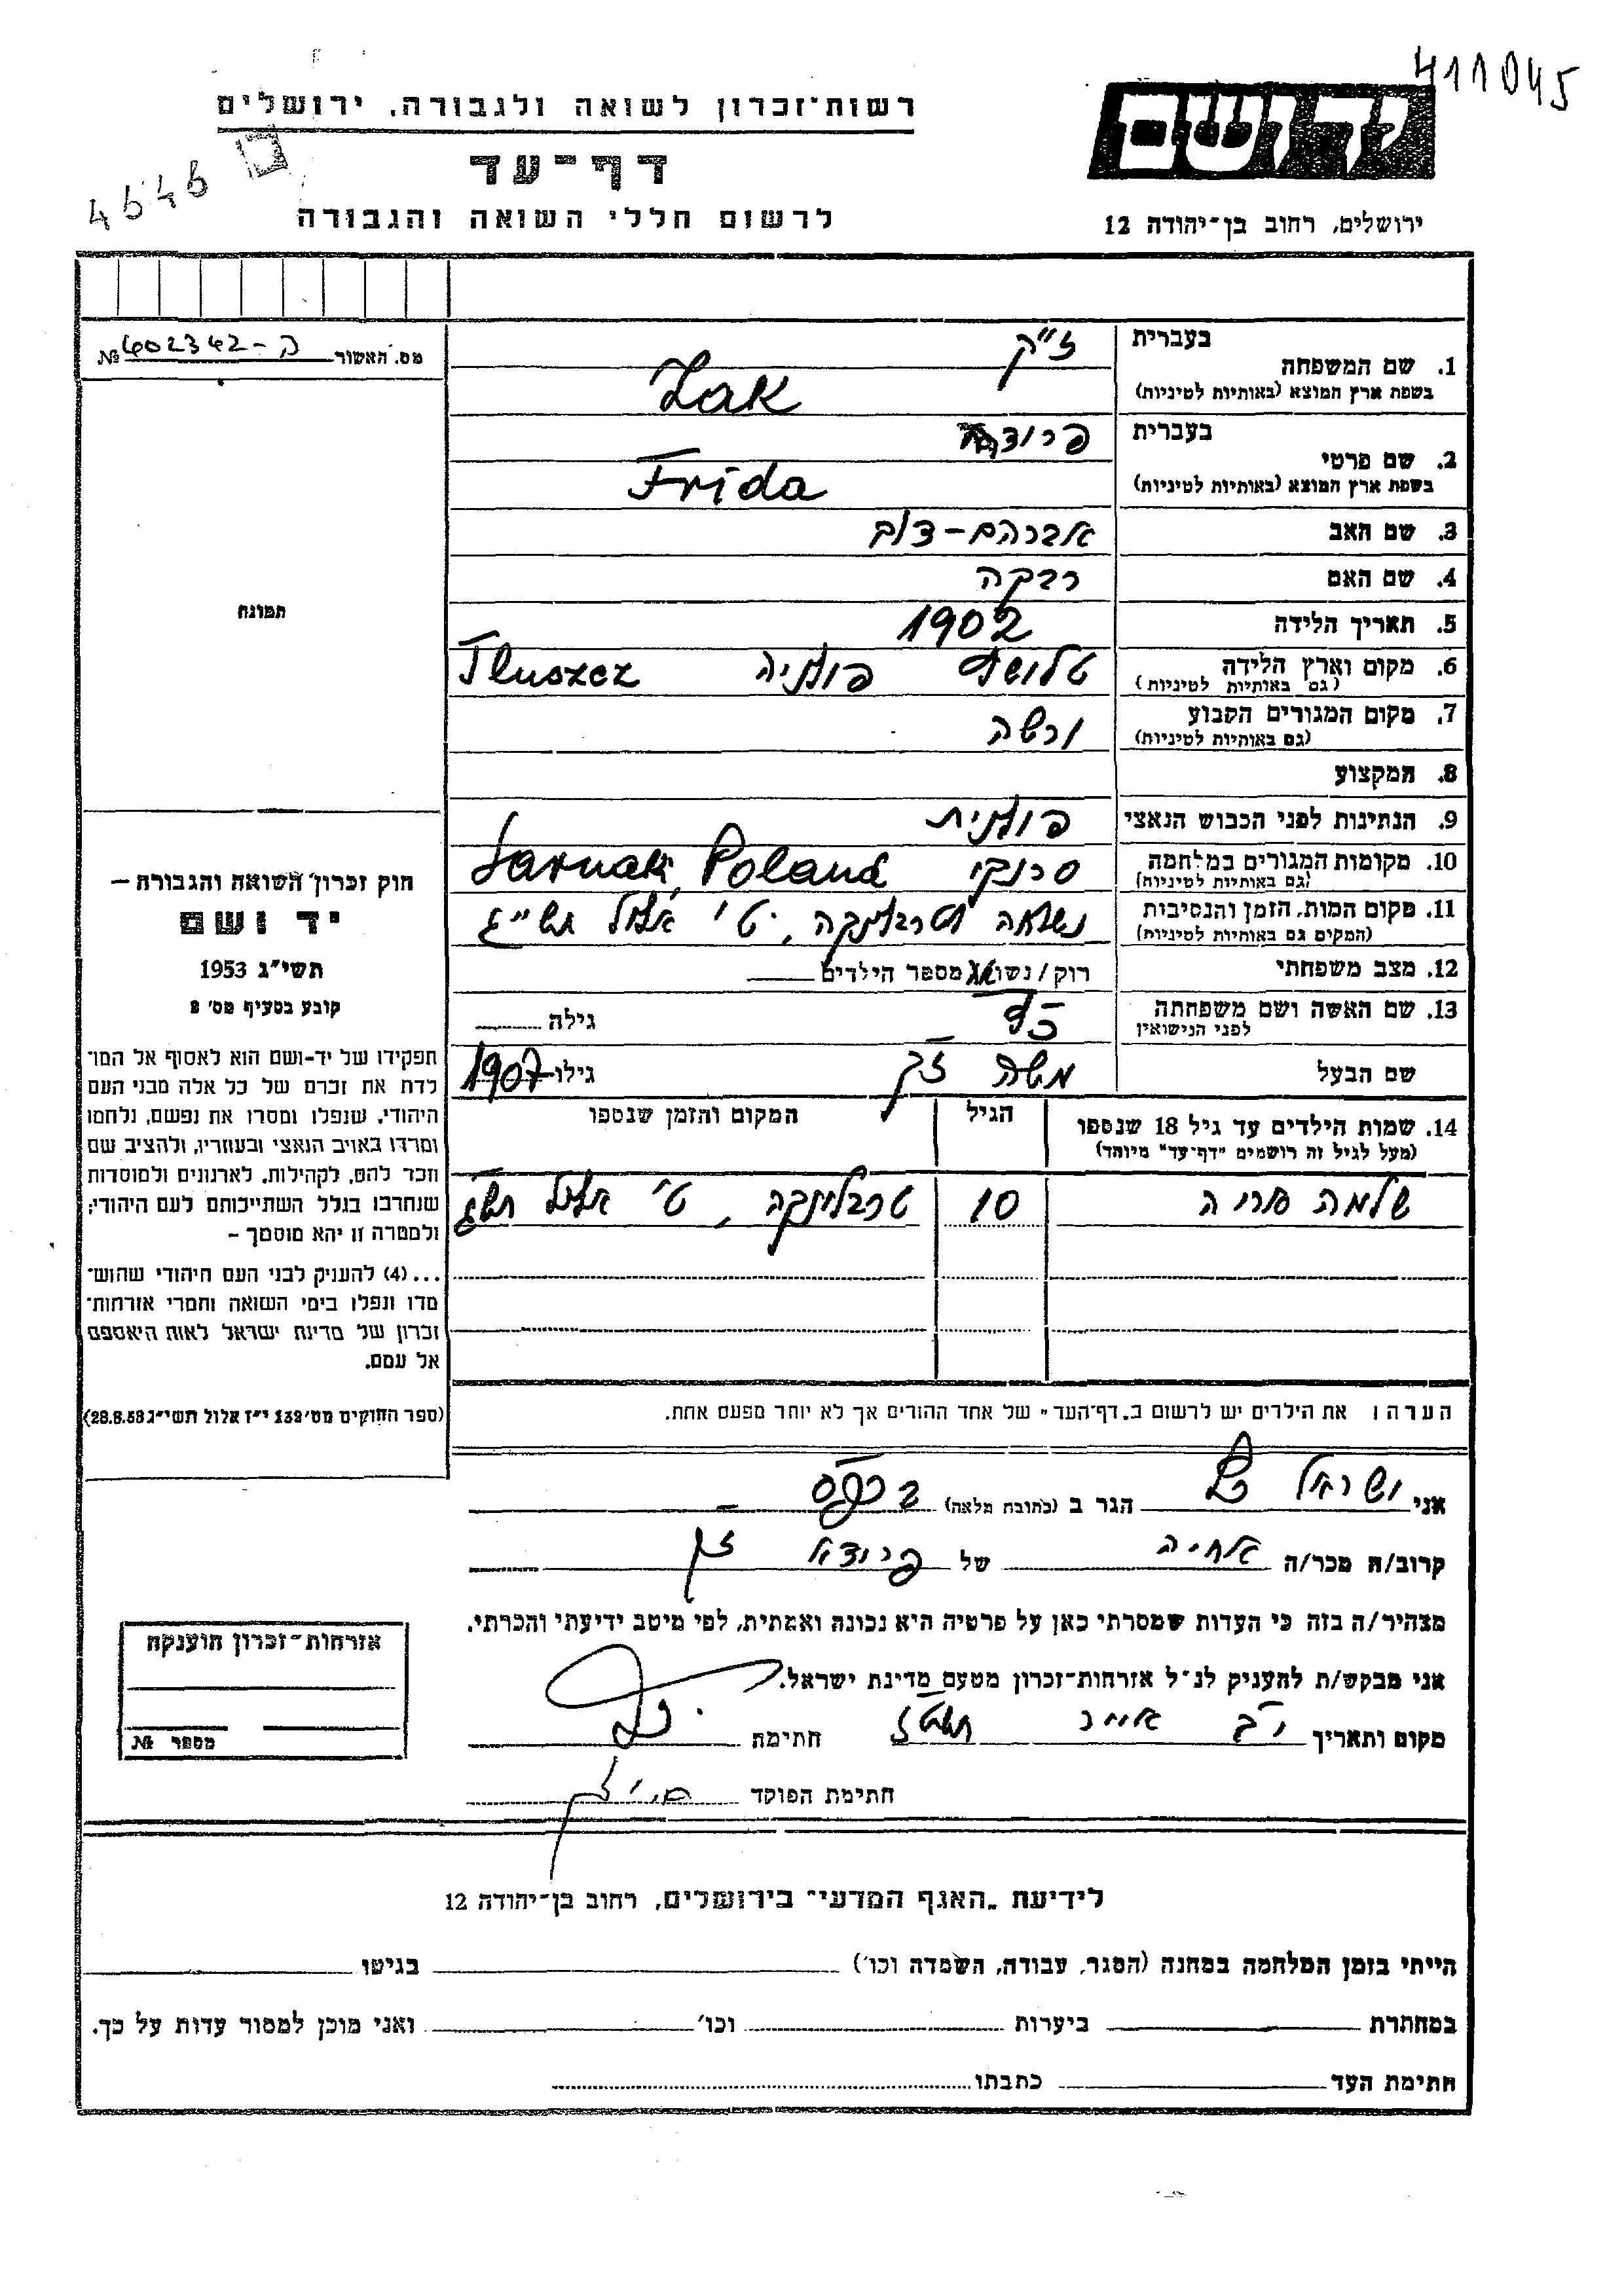 411045
רשות־זכרון לשואה ולגבורה, ירושלים
ידושם
דף־עד
4646
לרשום חללי השואה והגבורה
ירושלים, רחוב בן־יהודה 12
מס. האשור № 402342-ק
1. שם המשפחה
בעברית
ז"ק
בשפת ארץ המוצא (באותיות לטיניות)
Zak
2. שם פרטי
בעברית
פרידה
בשפת ארץ המוצא (באותיות לטיניות)
Frida
3. שם האב
אברהם-
4. שם האם
רבקה
5. תאריך הלידה
1902
6. מקום וארץ הלידה
(גם באותיות לטיניות)
פולניה Tluszcz
7. מקום המגורים הקבוע
(גם באותיות לטיניות)
ורשה
8. המקצוע
9. הנתינות לפני הכבוש הנאצי
פולנית
10. מקומות המגורים במלחמה
(גם באותיות לטיניות)
סרנקי Sarnaki, Poland
11. מקום המות, הזמן והנסיבות
(המקום גם באותיות לטיניות)
אלול תש"ג
12. מצב משפחתי
רוק/נשוי מספר הילדים
13. שם האשה ושם משפחתה
לפני הנישואין
גילה
שם הבעל
משה זק
גילו 1907
14. שמות הילדים עד גיל 18 שנספו
(מעל לגיל זה רושמים "דף־עד" מיוחד)
הגיל
המקום והזמן שנספו
שלמה 10 טרבלינקה, ט' אלול תש"ג
הערה: את הילדים יש לרשום ב„דף־העד" של אחד ההורים אך לא יותר מפעם אחת.
תמונה
חוק זכרון השואה והגבורה –
יד ושם
תשי"ג 1953
קובע בסעיף מס' 2
תפקידו של יד-ושם הוא לאסוף אל המו־
לדת את זכרם של כל אלה מבני העם
היהודי, שנפלו ומסרו את נפשם, נלחמו
ומרדו באויב הנאצי ובעוזריו, ולהציב שם
וזכר להם, לקהילות, לארגונים ולמוסדות
שנחרבו בגלל השתייכותם לעם היהודי;
ולמטרה זו יהא מוסמך –
...(4) להעניק לבני העם היהודי שהוש־
מדו ונפלו בימי השואה והמרי אזרחות־
זכרון של מדינת ישראל לאות היאספם
אל עמם.
(ספר החוקים מס' 132 י"ז אלול תשי"ג 28.8.53)
אני ישראל הגר ב (כתובת מלאה)
קרוב/ה מכר/ה של פרידה זק
מצהיר/ה בזה כי העדות שמסרתי כאן על פרטיה היא נכונה ואמתית, לפי מיטב ידיעתי והכרתי.
אני מבקש/ת להעניק לנ"ל אזרחות־זכרון מטעם מדינת ישראל.
מקום ותאריך י"ב אייר חתימה
חתימת הפוקד
אזרחות־זכרון הוענקה
מספר №
לידיעת „האגף המדעי" בירושלים, רחוב בן־יהודה 12
הייתי בזמן המלחמה במחנה (הסגר, עבודה, השמדה וכו') בגיטו
במחתרת ביערות וכו' ואני מוכן למסור עדות על כך.
חתימת העד כתבתו